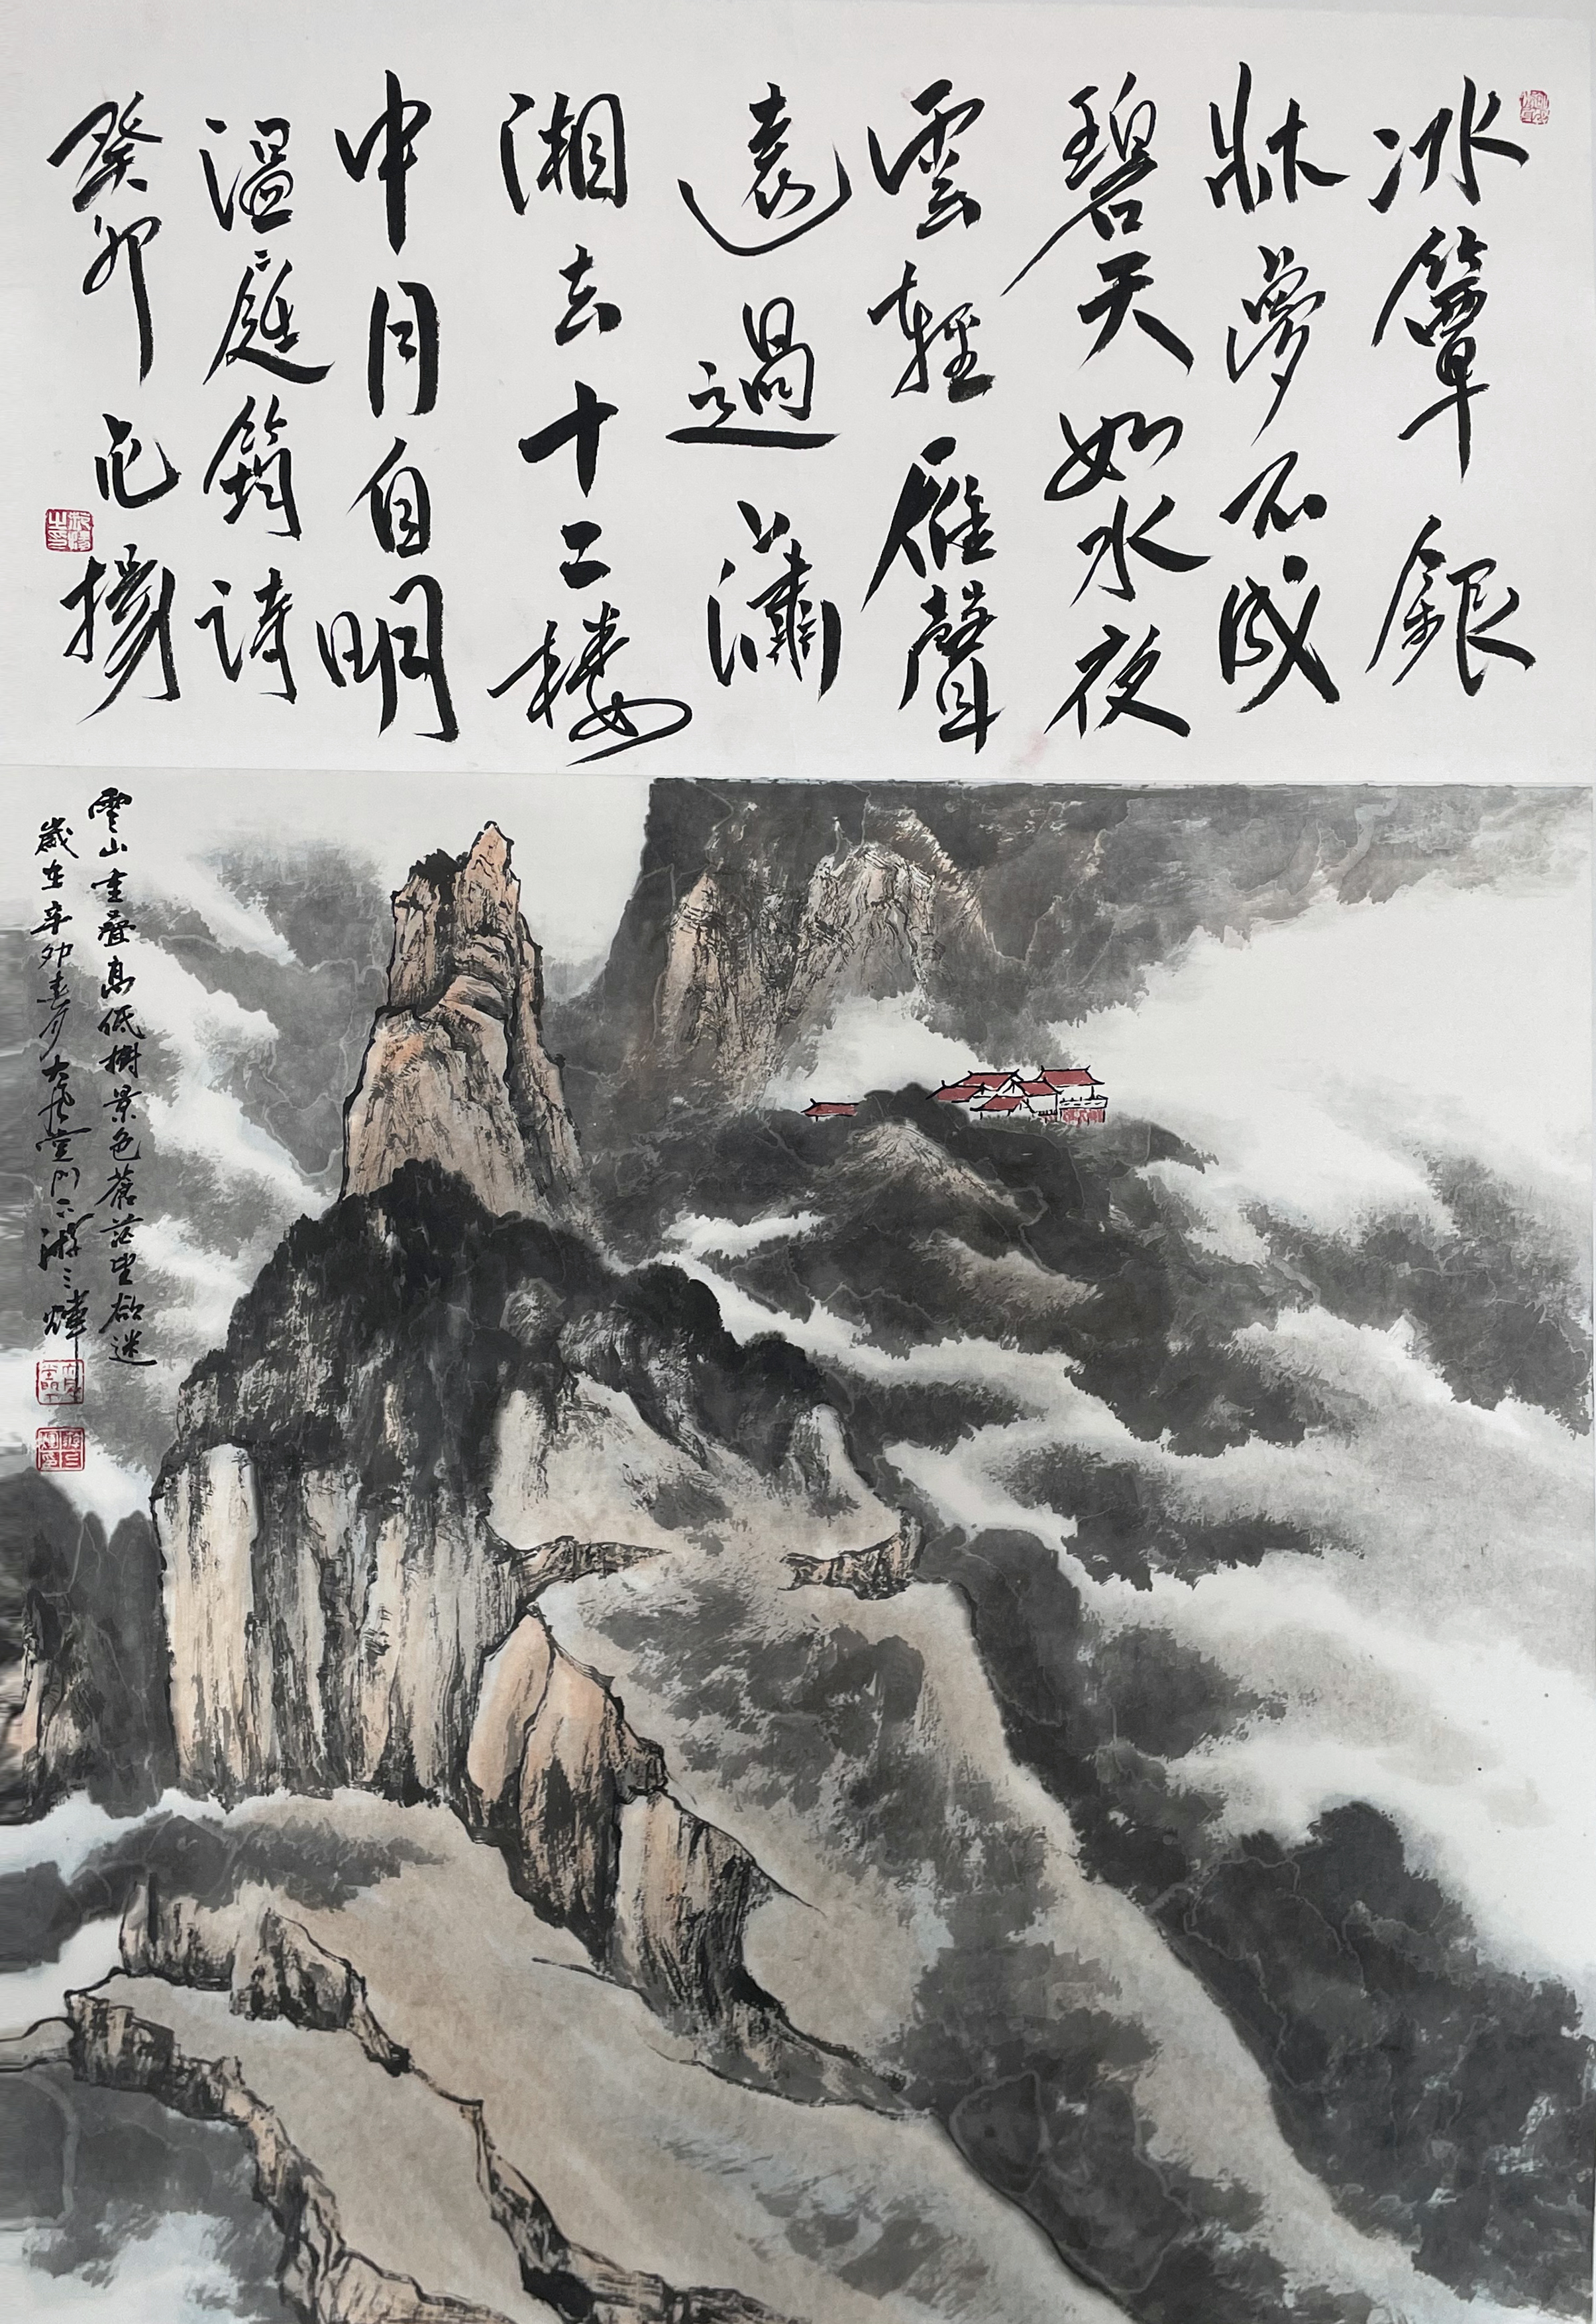 冰簟銀
牀夢不成
碧天如水夜
雲輕雁聲
遠過瀟
湘去十二樓
中月自明
溫庭筠诗
癸卯 揚
雲山重叠高低樹景色蒼茫望欲迷
歲在辛卯春月大風堂門下游三輝